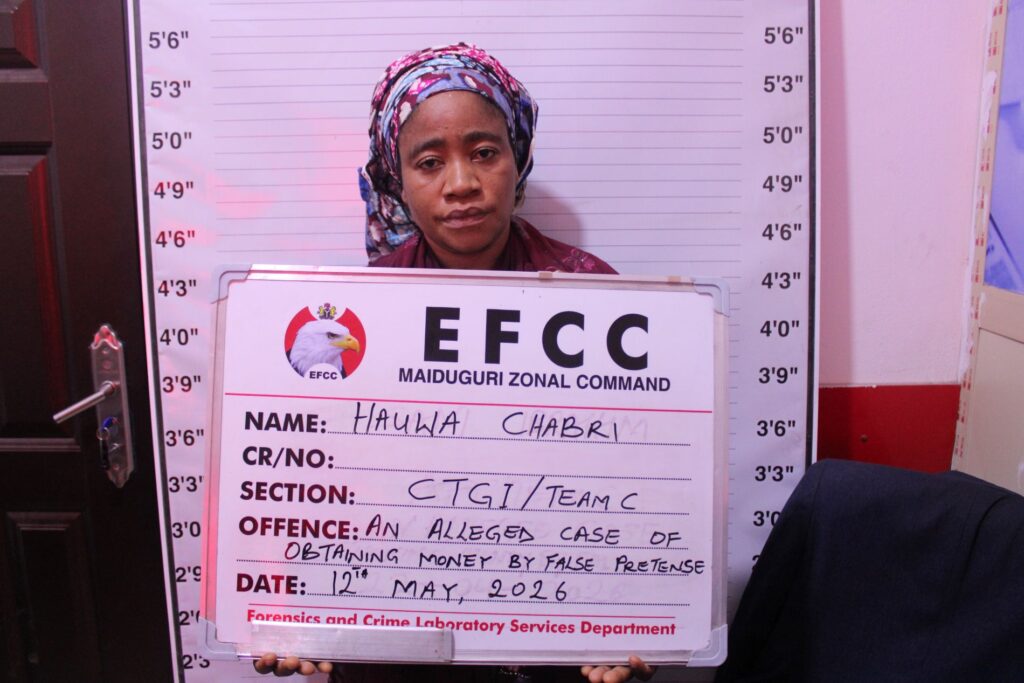 5'6"
5'3"
5'0"
4'9"
4'6"
4'3"
4'0"
3'9"
3'6"
3'3"
3'0
2'9
2'
2'3
5'6"
5'3"
5'0"
4'9"
4'6"
4'3"
4'0"
3'9"
3'6"
3'3"
3'0
EFCC
EFCC
MAIDUGURI ZONAL COMMAND
NAME: HAUWA CHABRI
CR/NO:
SECTION: CTGI/TEAM C
OFFENCE: AN ALLEGED CASE OF
OBTAINING MONEY BY FALSE PRETENSE
DATE: 12TH MAY, 2026
Forensics and Crime Laboratory Services Department